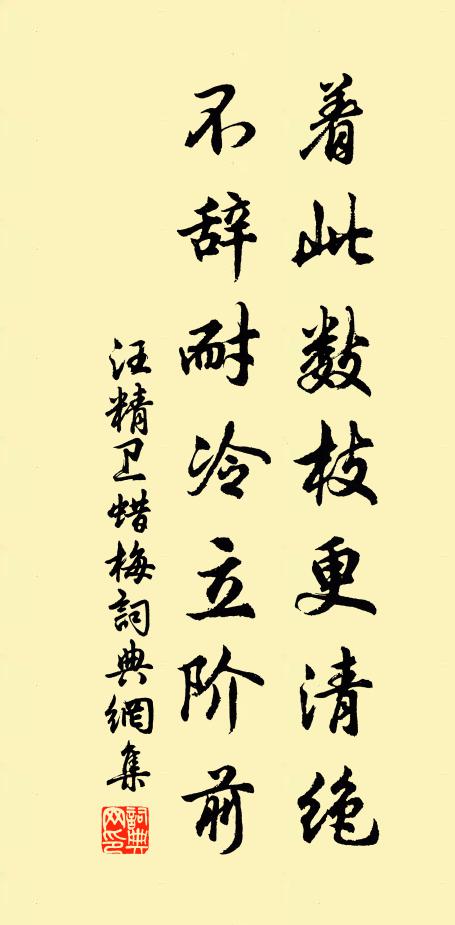 着此数枝更清绝
不辞耐冷立阶前
汪精卫蜡梅詞典網集
詞典网印